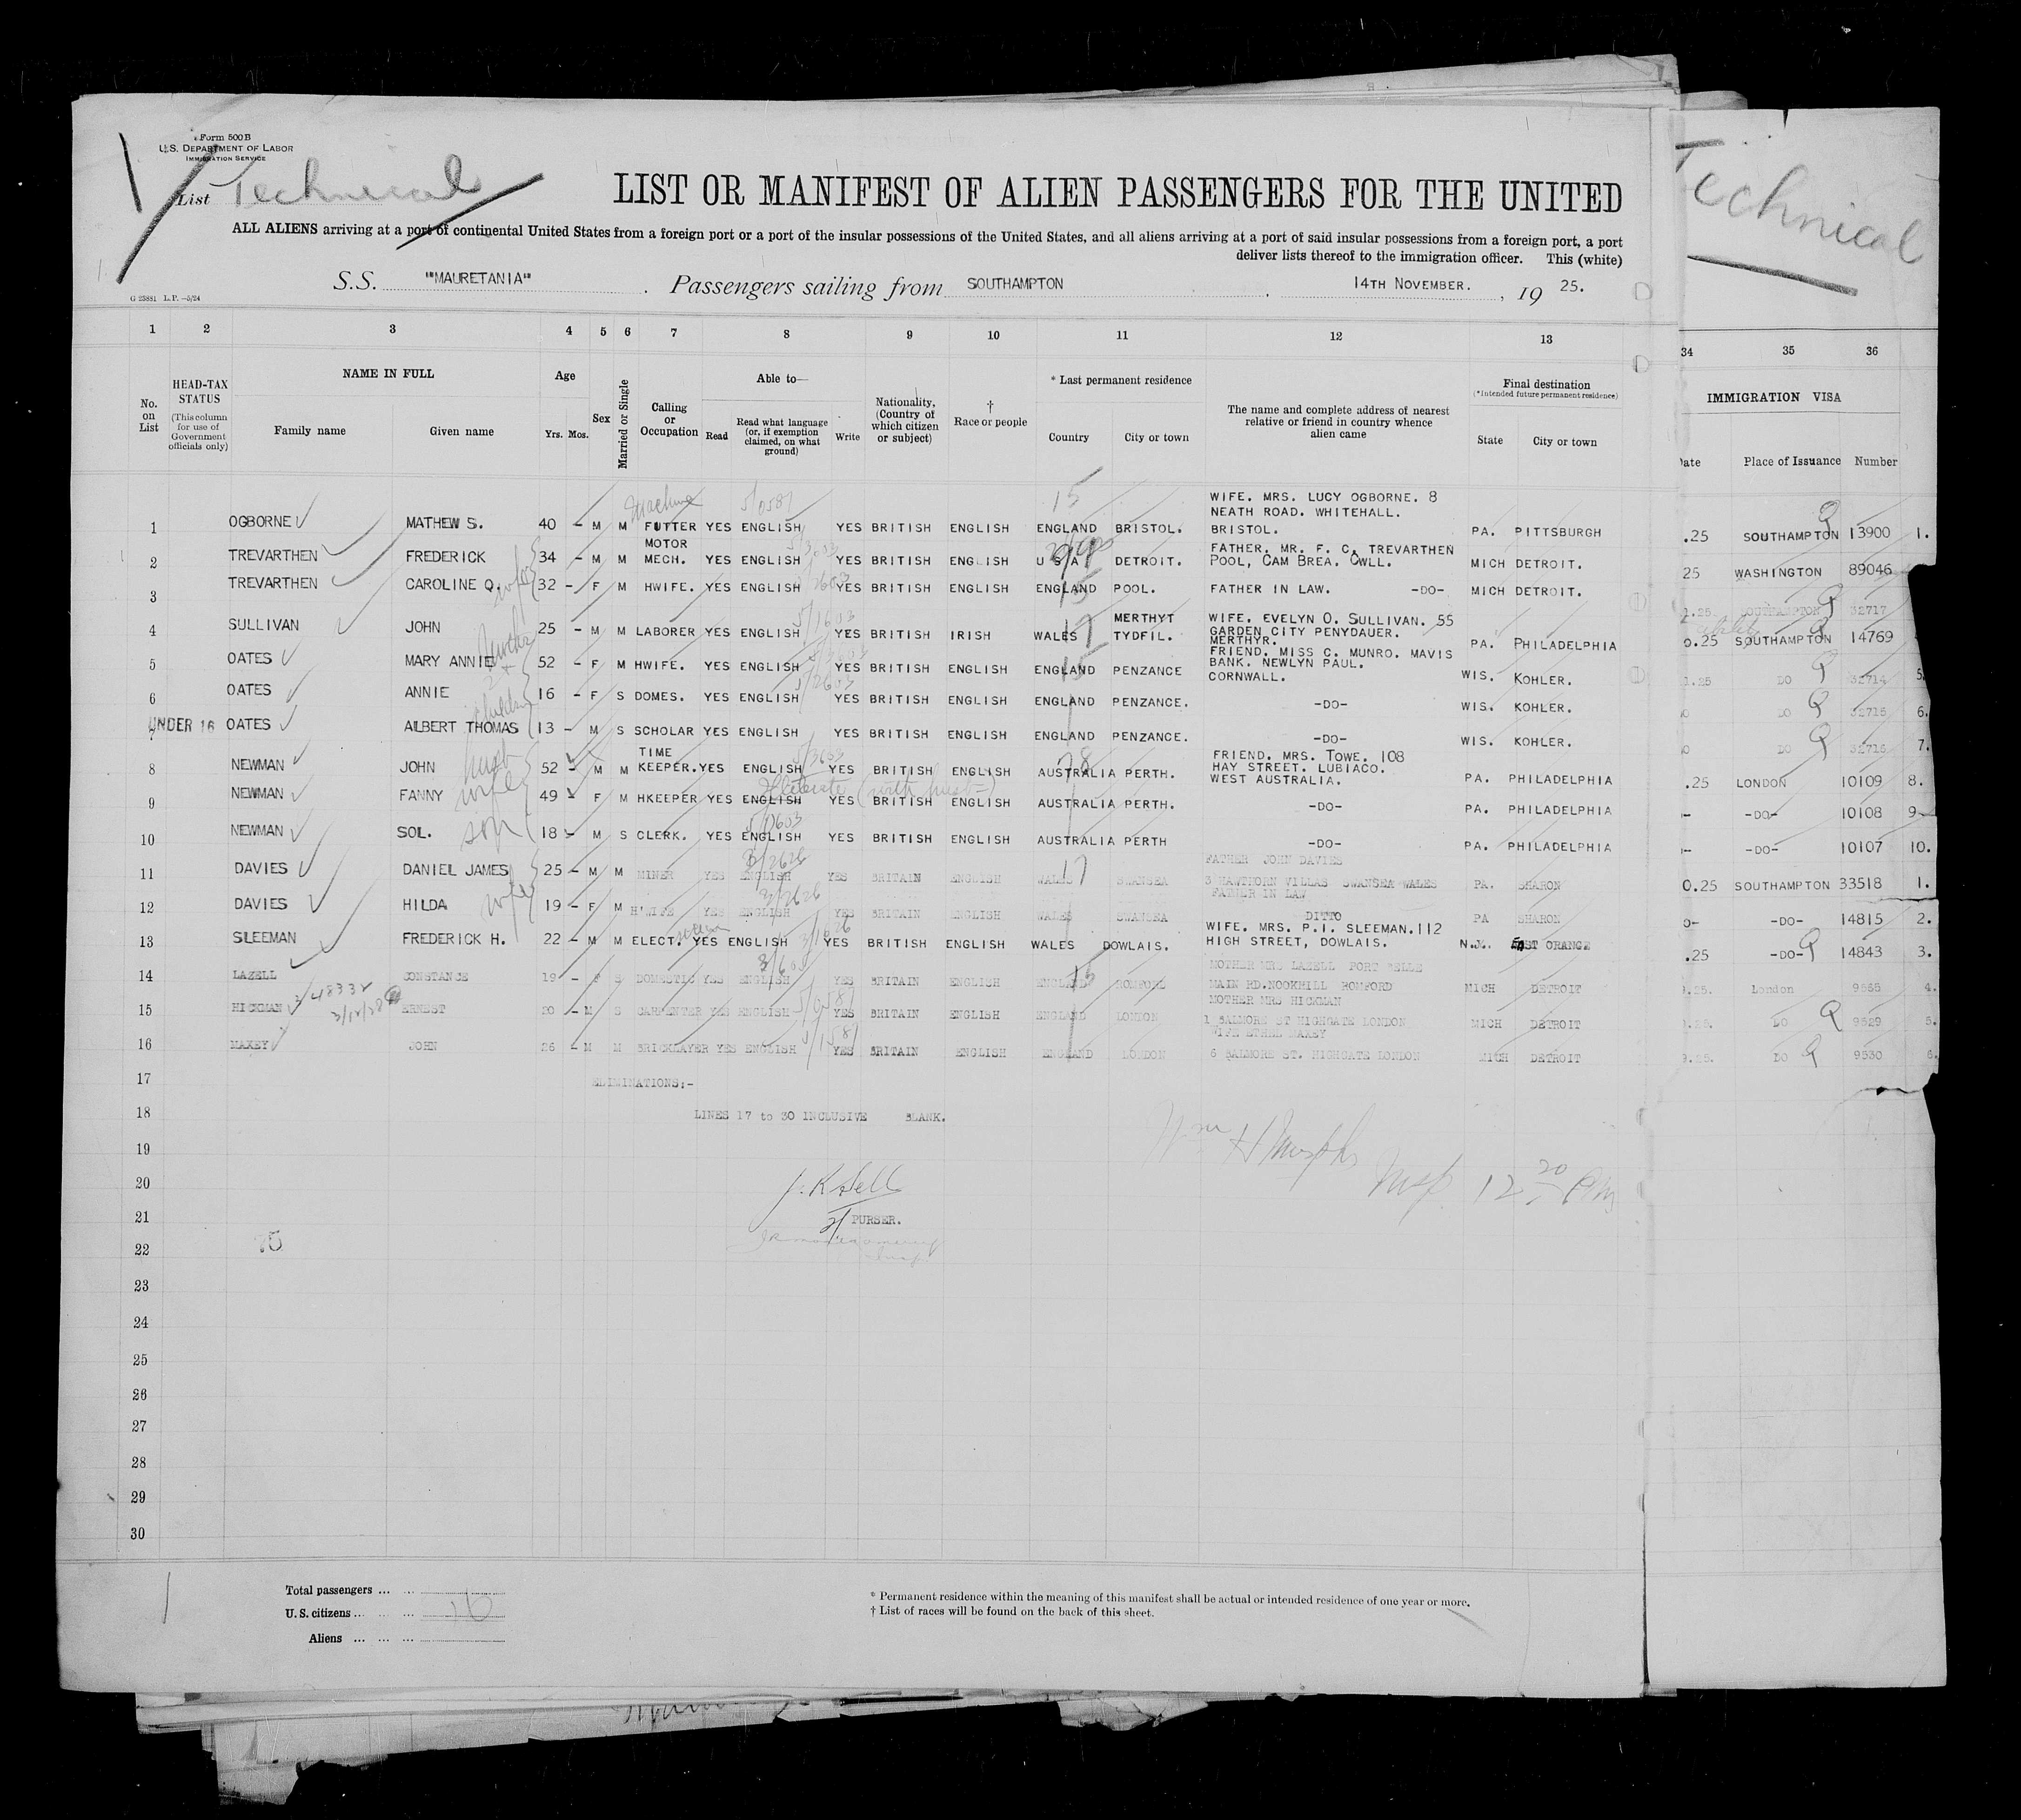 Form 500 B
U.S. DEPARTMENT OF LABOR
IMMIGRATION SERVICE
List Technical
Technical
LIST OR MANIFEST OF ALIEN PASSENGERS FOR THE UNITED
ALL ALIENS arriving at a port of continental United States from a foreign port or a port of the insular possessions of the United States, and all aliens arriving at a port of said insular possessions from a foreign port, a port
deliver lists thereof to the immigration officer. This (white)
S.S. "MAURETANIA" . Passengers sailing from SOUTHAMPTON , 14TH NOVEMBER. , 19 25.
G 23881 L.P. —5/24
1 2 3 4 5 6 7 8 9 10 11 12 13 34 35 36
No. on List
HEAD-TAX STATUS (This column for use of Government officials only)
NAME IN FULL
Family name Given name
Age
Yrs. Mos.
Sex
Married or Single
Calling or Occupation
Able to—
Read Read what language (or, if exemption claimed, on what ground) Write
Nationality, (Country of which citizen or subject)
† Race or people
* Last permanent residence
Country City or town
The name and complete address of nearest relative or friend in country whence alien came
Final destination
(*Intended future permanent residence)
State City or town
IMMIGRATION VISA
Date Place of Issuance Number
1 OGBORNE MATHEW S. 40 - M M Machine FUTTER YES ENGLISH YES BRITISH ENGLISH ENGLAND BRISTOL. WIFE. MRS. LUCY OGBORNE. 8 NEATH ROAD. WHITEHALL. BRISTOL. PA. PITTSBURGH .25 SOUTHAMPTON 13900 1.
2 TREVARTHEN FREDERICK 34 - M M MOTOR MECH. YES ENGLISH YES BRITISH ENGLISH U S A DETROIT. FATHER. MR. F. C. TREVARTHEN POOL, CAM BREA. CWLL. MICH DETROIT. 25 WASHINGTON 89046
3 TREVARTHEN CAROLINE Q. wife 32 - F M HWIFE. YES ENGLISH YES BRITISH ENGLISH ENGLAND POOL. FATHER IN LAW. -DO- MICH DETROIT. 1.25. SOUTHAMPTON 32717
4 SULLIVAN JOHN 25 - M M LABORER YES ENGLISH YES BRITISH IRISH WALES MERTHYT TYDFIL. WIFE. EVELYN O. SULLIVAN. 55 GARDEN CITY PENYDAUER. MERTHYR. PA. PHILADELPHIA 0.25 SOUTHAMPTON 14769
5 OATES MARY ANNIE 52 - F M HWIFE. YES ENGLISH YES BRITISH ENGLISH ENGLAND PENZANCE FRIEND. MISS C. MUNRO. MAVIS BANK. NEWLYN PAUL. CORNWALL. WIS. KOHLER. 1.25 DO 32714 5.
6 OATES ANNIE 16 - F S DOMES. YES ENGLISH YES BRITISH ENGLISH ENGLAND PENZANCE. -DO- WIS. KOHLER. DO 32715 6.
UNDER 16 7 OATES AILBERT THOMAS 13 - M S SCHOLAR YES ENGLISH YES BRITISH ENGLISH ENGLAND PENZANCE. -DO- WIS. KOHLER. DO 32716 7.
8 NEWMAN JOHN 52 - M M TIME KEEPER. YES ENGLISH YES BRITISH ENGLISH AUSTRALIA PERTH. FRIEND. MRS. TOWE. 108 HAY STREET. LUBIACO. WEST AUSTRALIA. PA. PHILADELPHIA .25 LONDON 10109 8.
9 NEWMAN FANNY wife 49 F M HKEEPER YES ENGLISH Illiterate YES BRITISH ENGLISH AUSTRALIA PERTH. -DO- PA. PHILADELPHIA -DO- 10108 9
10 NEWMAN SOL. son 18 - M S CLERK. YES ENGLISH YES BRITISH ENGLISH AUSTRALIA PERTH -DO- PA. PHILADELPHIA -DO- 10107 10.
11 DAVIES DANIEL JAMES 25 - M M MINER YES ENGLISH YES BRITAIN ENGLISH WALES SWANSEA FATHER JOHN DAVIES 3 HAWTHORN VILLAS SWANSEA WALES PA. SHARON 0.25 SOUTHAMPTON 33518 1.
12 DAVIES HILDA wife 19 - F M H'WIFE YES ENGLISH YES BRITAIN ENGLISH WALES SWANSEA FATHER IN LAW DITTO PA SHARON -DO- 14815 2.
13 SLEEMAN FREDERICK H. 22 - M M ELECT. YES ENGLISH YES BRITISH ENGLISH WALES DOWLAIS. WIFE. MRS. P.I. SLEEMAN. 112 HIGH STREET, DOWLAIS. N.J. EAST ORANGE .25 -DO- 14843 3.
14 LAZELL CONSTANCE 19 - F S DOMESTIC YES ENGLISH YES BRITAIN ENGLISH ENGLAND ROMFORD MOTHER MRS LAZELL PORT BELLE MAIN RD. NOOKHILL ROMFORD MICH DETROIT .25. London 9565 4.
15 HICKMAN ERNEST 20 - M S CARPENTER YES ENGLISH YES BRITAIN ENGLISH ENGLAND LONDON MOTHER MRS HICKMAN 1 BALMORE ST HIGHGATE LONDON MICH DETROIT DO 9529 5.
16 MAXEY JOHN 26 - M M BRICKLAYER YES ENGLISH YES BRITAIN ENGLISH ENGLAND LONDON WIFE ETHEL MAXEY 6 BALMORE ST. HIGHGATE LONDON MICH DETROIT 9.25. DO 9530 6.
17 ELIMINATIONS;-
18 LINES 17 to 30 INCLUSIVE BLANK.
19 Wm H Murphy
20 J. K Sell Insp. 12 20 PM
21 PURSER.
22
23
24
25
26
27
28
29
30
Total passengers ... ...
U.S. citizens ... ... ... 16
Aliens ... ... ...
* Permanent residence within the meaning of this manifest shall be actual or intended residence of one year or more.
† List of races will be found on the back of this sheet.